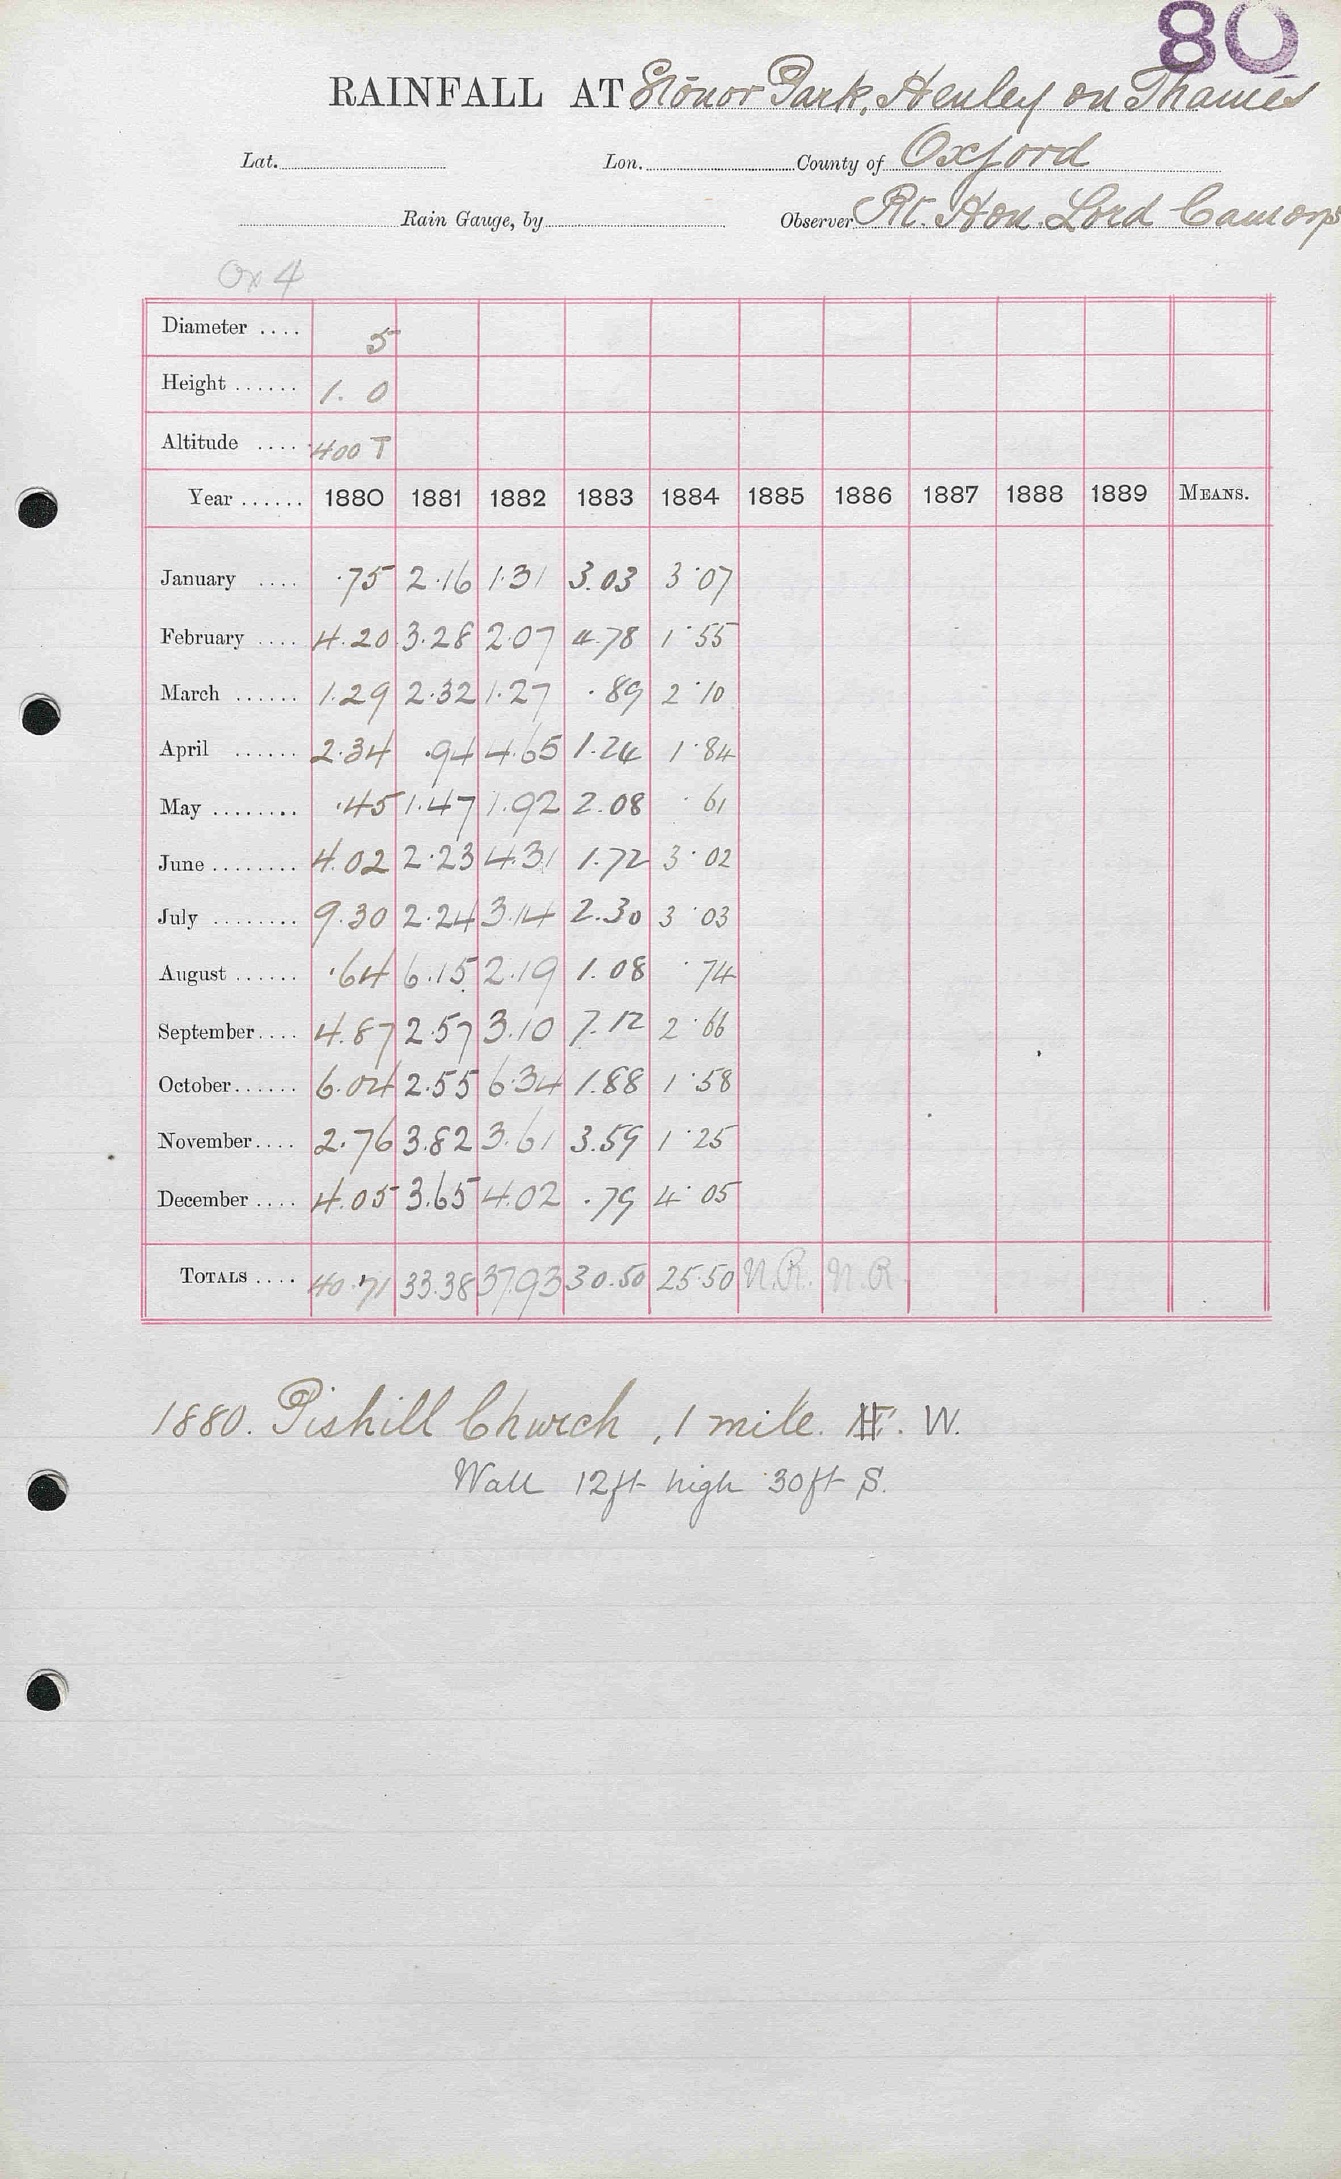 80
RAINFALL AT Stonor Park, Henley on Thames
Lat. Lon. County of Oxford
Rain Gauge, by Observer Rt. Hon. Lord Camoys
Ox 4
Diameter .... 5
Height ...... 1. 0
Altitude .... 400 T
Year ...... 1880 1881 1882 1883 1884 1885 1886 1887 1888 1889 MEANS.
January .... .75 2.16 1.31 3.03 3.07
February .... 4.20 3.28 2.07 4.78 1.55
March ...... 1.29 2.32 1.27 .89 2.10
April ...... 2.34 .94 4.65 1.24 1.84
May ........ .45 1.47 1.92 2.08 .61
June ........ 4.02 2.23 4.31 1.72 3.02
July ........ 9.30 2.24 3.14 2.30 3.03
August ...... .64 6.15 2.19 1.08 .74
September .... 4.87 2.57 3.10 7.12 2.66
October ...... 6.04 2.55 6.34 1.88 1.58
November .... 2.76 3.82 3.61 3.59 1.25
December .... 4.05 3.65 4.02 .79 4.05
TOTALS .... 40.71 33.38 37.93 30.50 25.50 N.R. N.R
1880. Pishill Church, 1 mile. W.
Wall 12ft high 30ft S.